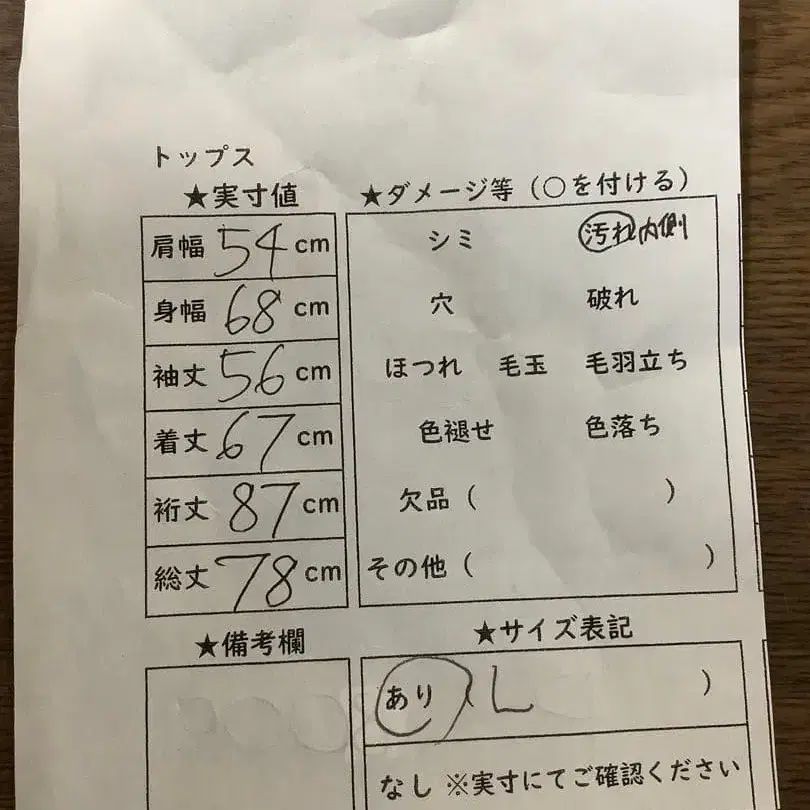 トップス
★実寸値
肩幅 54 cm
身幅 68 cm
袖丈 56 cm
着丈 67 cm
裄丈 87 cm
総丈 78 cm
★ダメージ等（○を付ける）
シミ 汚れ 内側
穴 破れ
ほつれ 毛玉 毛羽立ち
色褪せ 色落ち
欠品（ ）
その他（ ）
★備考欄
★サイズ表記
あり（ L ）
なし ※実寸にてご確認ください